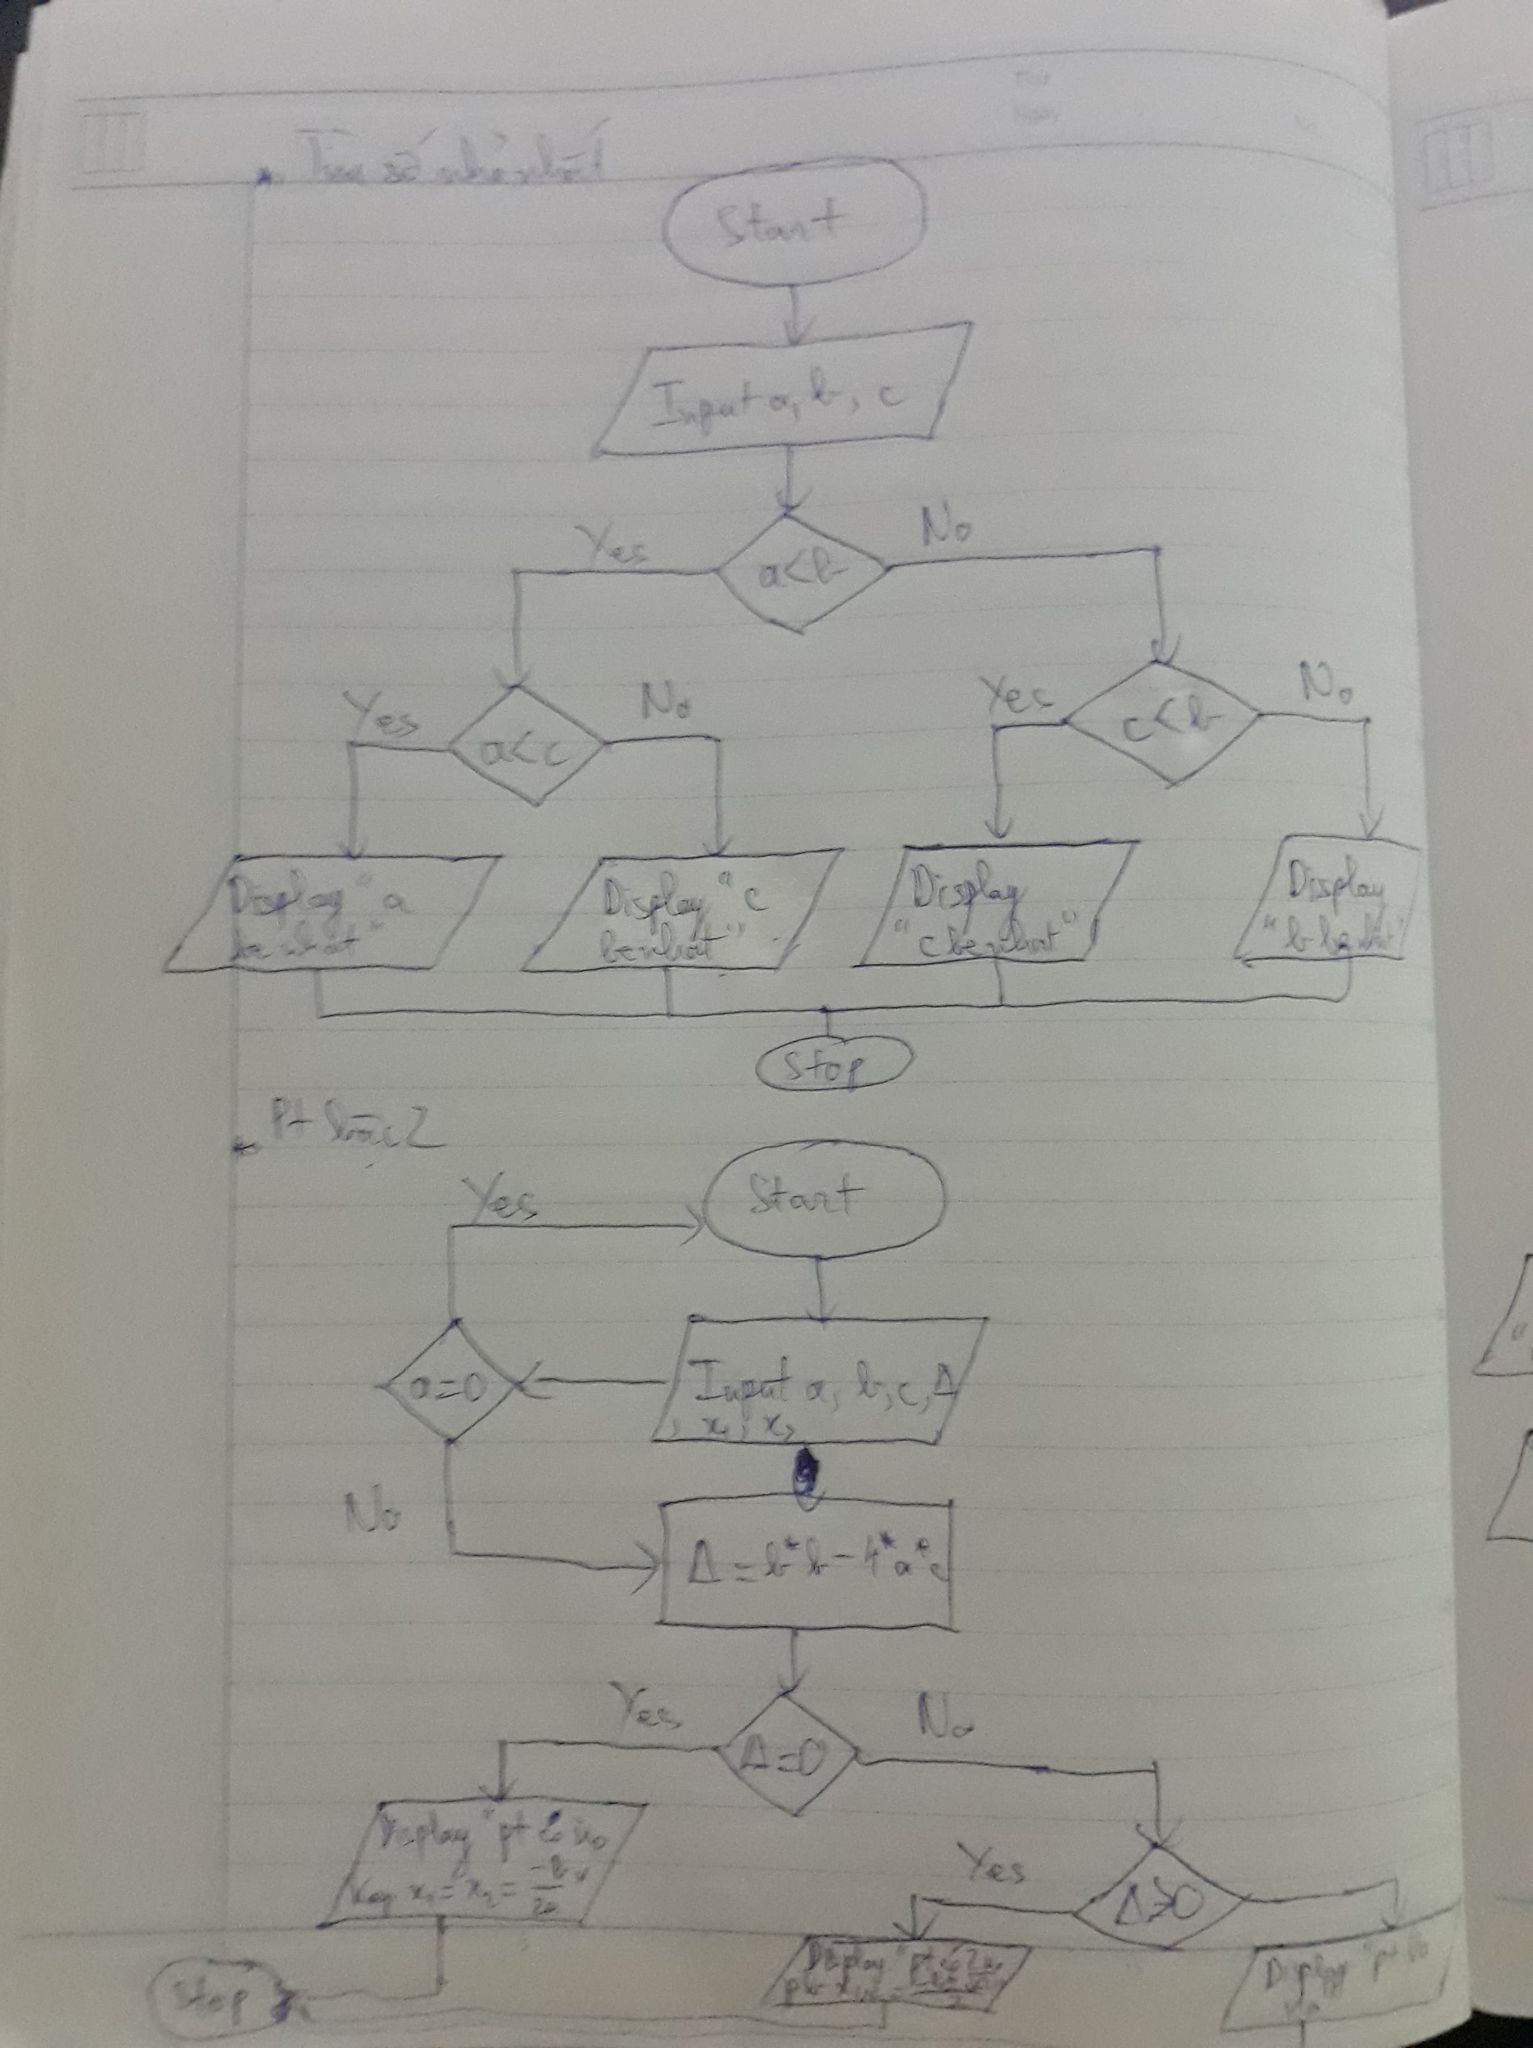 * Tìm số nhỏ nhất
Start
Input a, b, c
Yes
a<b
No
Yes
a<c
No
Yes
c<b
No
Display "a
be nhat"
Display "c
be nhat"
Display
"c be nhat"
Display
"b be nhat"
Stop
* Pt bậc 2
Yes
Start
a=0
Input a, b, c, Δ
, x₁, x₂
No
Δ = b*b - 4*a*c
Yes
Δ=0
No
Display "pt có no
kep x₁ = x₂ = -b/2a"
Yes
Δ>0
Display "pt có 2 no
pb
Display "pt vô
no
Stop